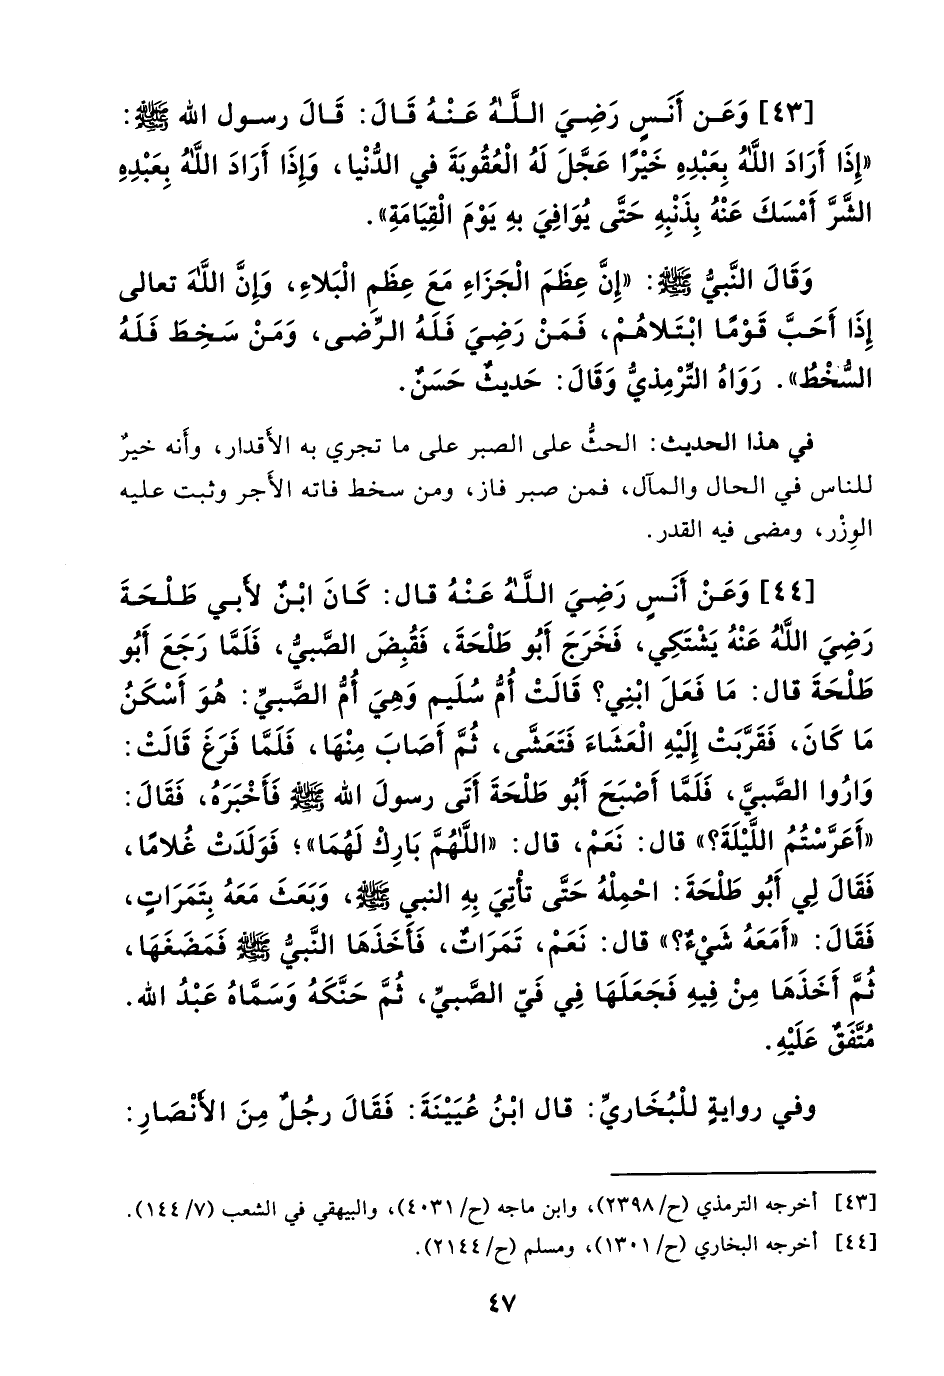 [٤٣] وَعَـن أَنَـسٍ رَضِـيَ الـلَّـهُ عَـنْـهُ قَـالَ: قَـالَ رسـول الله ﷺ:
«إِذَا أَرَادَ اللَّهُ بِعَبْدِهِ خَيْرًا عَجَّلَ لَهُ الْعُقُوبَةَ في الدُّنْيا، وَإِذَا أَرَادَ اللَّهُ بِعَبْدِهِ
الشَّرَّ أَمْسَكَ عَنْهُ بِذَنْبِهِ حَتَّى يُوَافِيَ بهِ يَوْمَ الْقِيَامَةِ».
وَقَالَ النَّبيُّ ﷺ: «إِنَّ عِظَمَ الْجَزَاءِ مَعَ عِظَمِ الْبَلاءِ، وَإِنَّ اللَّهَ تعالى
إِذَا أَحَبَّ قَوْمًا ابْتَلاهُمْ، فَمَنْ رَضِيَ فَلَهُ الرِّضى، وَمَنْ سَخِطَ فَلَهُ
السُّخْطُ». رَوَاهُ التِّرْمِذيُّ وَقَالَ: حَديثٌ حَسَنٌ.
في هذا الحديث: الحثُّ على الصبر على ما تجري به الأقدار، وأنه خيرٌ
للناس في الحال والمآل، فمن صبر فاز، ومن سخط فاته الأجر وثبت عليه
الوِزْر، ومضى فيه القدر.
[٤٤] وَعَـنْ أَنَـسٍ رَضِـيَ الـلَّـهُ عَـنْـهُ قال: كَـانَ ابْـنٌ لأبـي طَـلْـحَـةَ
رَضِيَ اللَّهُ عَنْهُ يَشْتَكِي، فَخَرَجَ أَبُو طَلْحَةَ، فَقُبِضَ الصَّبيُّ، فَلَمَّا رَجَعَ أَبُو
طَلْحَةَ قال: مَا فَعَلَ ابْنِي؟ قَالَتْ أُمُّ سُلَيم وَهِيَ أُمُّ الصَّبيِّ: هُوَ أَسْكَنُ
مَا كَانَ، فَقَرَّبَتْ إِلَيْهِ الْعَشَاءَ فَتَعَشَّى، ثُمَّ أَصَابَ مِنْهَا، فَلَمَّا فَرَغَ قَالَتْ:
وَارُوا الصَّبيَّ، فَلَمَّا أَصْبَحَ أَبُو طَلْحَةَ أَتَى رسولَ الله ﷺ فَأَخْبَرَهُ، فَقَالَ:
«أَعَرَّسْتُمُ اللَّيْلَةَ؟» قال: نَعَمْ، قال: «اللَّهُمَّ بَارِكْ لَهُمَا»؛ فَوَلَدَتْ غُلامًا،
فَقَالَ لِي أَبُو طَلْحَةَ: احْمِلْهُ حَتَّى تَأْتِيَ بِهِ النبي ﷺ، وَبَعَثَ مَعَهُ بِتَمَرَاتٍ،
فَقَالَ: «أَمَعَهُ شَيْءٌ؟» قال: نَعَمْ، تَمَرَاتٌ، فَأَخَذَهَا النَّبيُّ ﷺ فَمَضَغَهَا،
ثُمَّ أَخَذَهَا مِنْ فِيهِ فَجَعَلَهَا فِي فَيّ الصَّبيِّ، ثُمَّ حَنَّكَهُ وَسَمَّاهُ عَبْدُ الله.
مُتَّفَقٌ عَلَيْهِ.
وفي روايةٍ للْبُخَاريِّ: قال ابْنُ عُيَيْنَةَ: فَقَالَ رجُلٌ مِنَ الأَنْصَارِ:
[٤٣] أخرجه الترمذي (ح/٢٣٩٨)، وابن ماجه (ح/٤٠٣١)، والبيهقي في الشعب (٧/ ١٤٤).
[٤٤] أخرجه البخاري (ح/١٣٠١)، ومسلم (ح/٢١٤٤).
٤٧